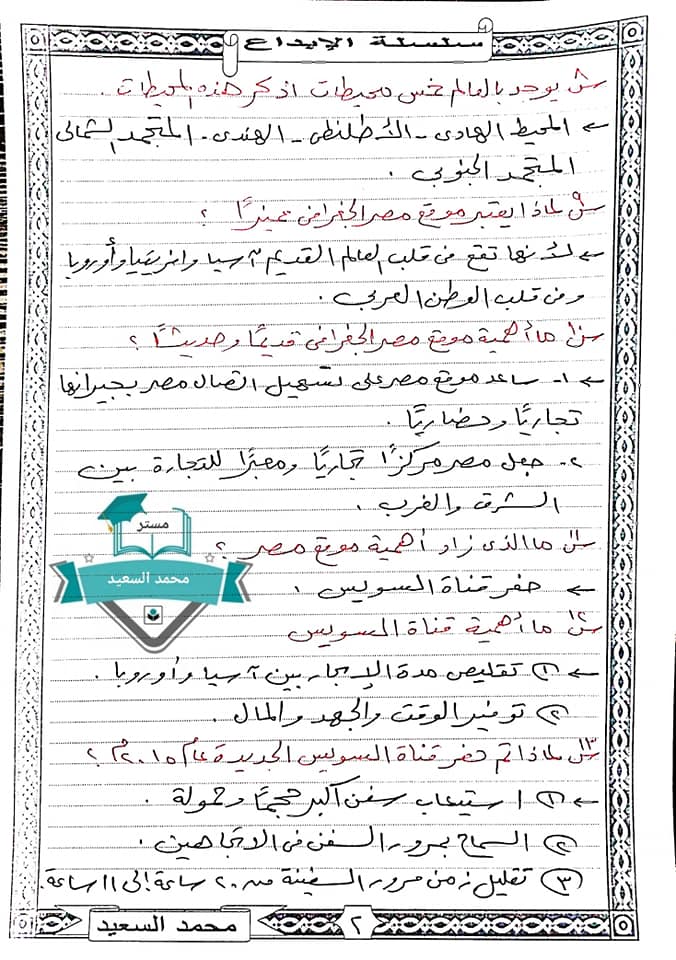 سلسلة الإبداع
س٨ يوجد بالعالم خمس محيطات اذكر هذه المحيطات .
← المحيط الهادى - الأطلنطى - الهندى - المتجمد الشمالى
المتجمد الجنوبي .
س٩ لماذا يعتبر موقع مصر الجغرافى مميزًا ؟
← لأنها تقع فى قلب العالم القديم آسيا وافريقيا وأوروبا
وفى قلب الوطن العربي .
س١٠ ما أهمية موقع مصر الجغرافى قديمًا وحديثًا ؟
← ١- ساعد موقع مصر على تسهيل اتصال مصر بجيرانها
تجاريًا وحضاريًا .
٢- جعل مصر مركزًا تجاريًا ومعبرًا للتجارة بين
الشرق والغرب .
س١١ ما الذى زاد أهمية موقع مصر ؟
← حفر قناة السويس .
س١٢ ما أهمية قناة السويس
← ١ تقليص مدة الإبحار بين آسيا وأوروبا .
٢ توفير الوقت والجهد والمال .
س١٣ لماذا تم حفر قناة السويس الجديدة عام ٢٠١٥م ؟
← ١ استيعاب سفن أكبر حجمًا وحمولة .
٢ السماح بمرور السفن فى الاتجاهين .
٣ تقليل زمن مرور السفينة من ٢٠ ساعة إلى ١١ ساعة.
مستر
محمد السعيد
٢
محمد السعيد